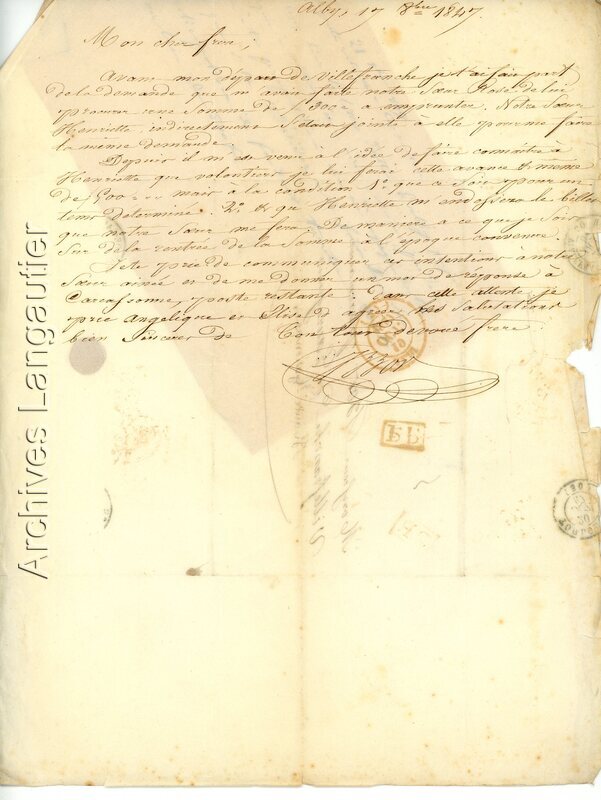 Alby, 17 8bre 1847.
Mon cher frere,
Avant mon départ de Villefranche, je t'ai fait part
de la demande que m'avait faite notre Sœur Rose de lui
procurer une Somme de 300 a emprunter. Notre Sœur
Henriette indirectement S'etait jointe à elle pour me faire
la même demande
Depuis il m'est venu à l'idée de faire connaitre à
Henriette que volontiers je lui ferai cette avance & même
de 500 mais a la condition 1º que ce Soit pour un
tems determiné. 2º & que Henriette m'endossera le billet
que notre Sœur me fera. De maniere a ce que je Sois
Sur de la rentrée de la Somme à l'epoque convenue.
Je te prie de communiquer ces intentions à notre
Sœur ainée et de me donner un mot de réponse à
Carcassonne, poste restante. Dans cette attente, je
prie Angélique et Elise d'agréer mes Salutations
bien Sinceres de ton devoué frere
P.P.
Archives Langautier